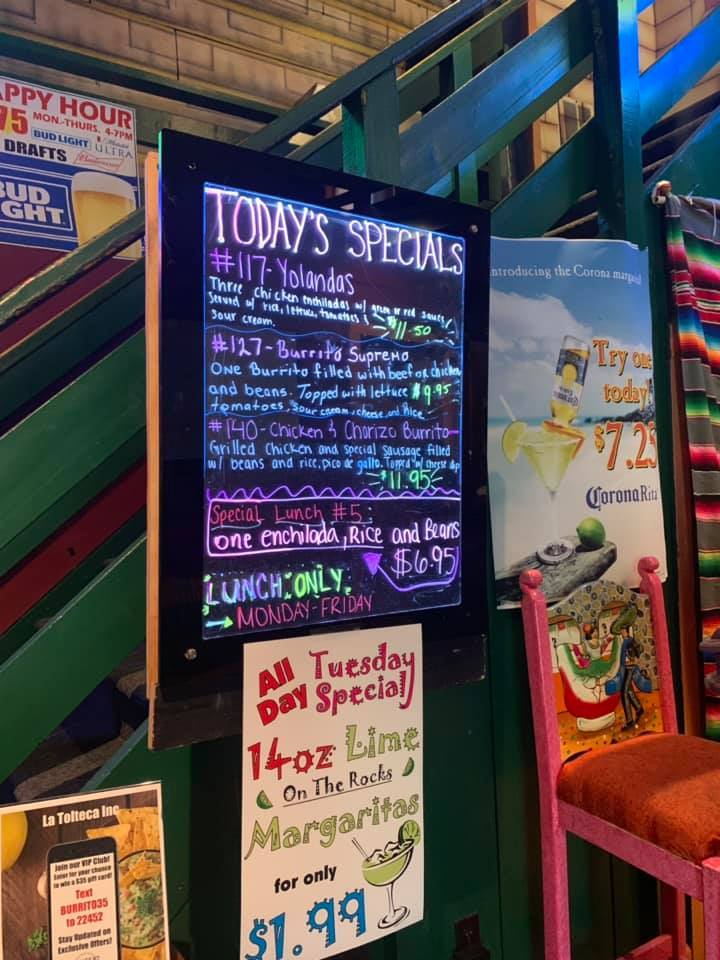 APPY HOUR
75 MON.-THURS. 4-7PM
BUD LIGHT ULTRA
DRAFTS Budweiser
BUD
GHT.
TODAY'S SPECIALS
#117-Yolandas
Three chicken enchiladas w/ green or red sauce
Served w/ rice, lettuce, tomatoes &
Sour cream. $11.50
#127-Burrito Supremo
One Burrito filled with beef or chicken
and beans. Topped with lettuce $9.95
tomatoes, sour cream, cheese, and Rice
#140-Chicken & Chorizo Burrito
Grilled Chicken and special Sausage filled
w/ beans and rice, pico de gallo. Topped w/ cheese dip
$11.95
Special Lunch #5:
one enchilada, Rice and Beans
$6.95
LUNCH ONLY
MONDAY-FRIDAY
ntroducing the Corona margari
Try one
today!
$7.25
CoronaRita
All Day Tuesday
Special!
14oz Lime
On The Rocks
Margaritas
for only
$1.99
La Tolteca Inc
Join our VIP Club!
Enter for your chance
to win a $35 gift card!
Text
BURRITO35
to 22452
Stay Updated on
Exclusive Offers!